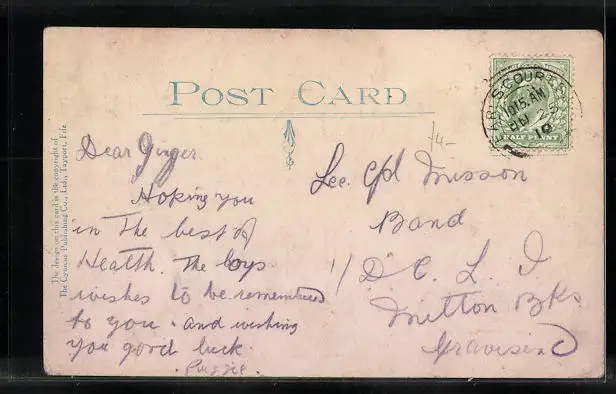 POST CARD
Dear Ginger
Hoping you
in the best of
Health. The boys
wishes to be remembered
to you. and wishing
you good luck.
Lce. Cpl Musson
Band
1/ D C. L. I
Milton Bks
Gravesend
The design on this card is the copyright of
The Cynicus Publishing Co., Ltd., Tayport, Fife
S COURT
1015. AM
10
HALF PENNY
74-